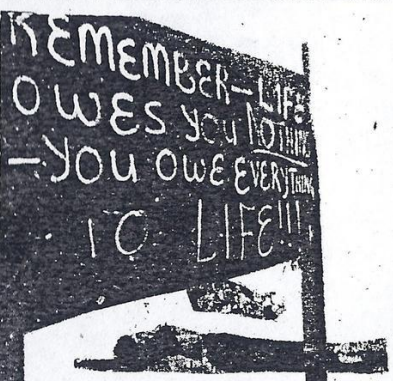 REMEMBER — LIFE
OWES YOU NOTHING
— YOU OWE EVERYTHING
TO LIFE!!!